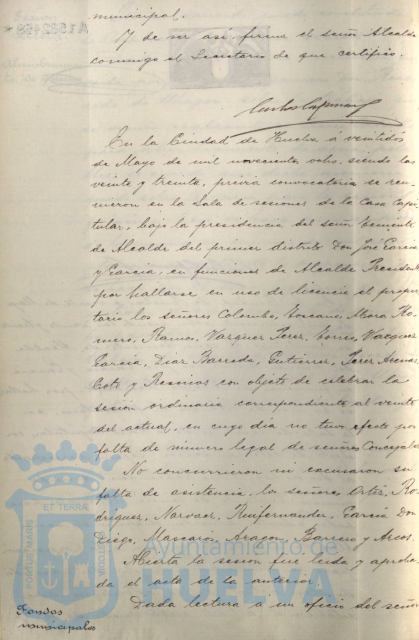 municipal.
Y de ser así, firma el señor Alcalde
conmigo el Secretario de que certifico.
En la Ciudad de Huelva á veintidós
de Mayo de mil novecientos ocho, siendo las
veinte y treinta, previa convocatoria se reu-
nieron en la Sala de sesiones de la Casa Capi-
tular, bajo la presidencia del señor Teniente
de Alcalde del primer distrito Don José García
y García, en funciones de Alcalde Presidente
por hallarse en uso de licencia el propie-
tario los señores Colombo, Toscano, Mora Ro-
mero, Ramos, Vazquez Perez, Torres, Vazquez
García, Diaz Barreda, Gutierrez, Perez Arenas,
Coto y Resinas con objeto de celebrar la
sesión ordinaria correspondiente al veinte
del actual, en cuyo día no tuvo efecto por
falta de número legal de señores Concejales
No concurrieron ni excusaron su
falta de asistencia, los señores Ortiz, Ro-
driguez, Narvaez, Ruifernandez, García Don
Diego, Mascaros, Aragon, Barrero y Arcos.
Abierta la sesión fue leida y aproba-
da el acta de la anterior.
Fondos
municipales
Dada lectura á un oficio del señor
A1582458
PORTUS MARIS
ET TERRÆ
CUSTODIA
Ayuntamiento de
HUELVA